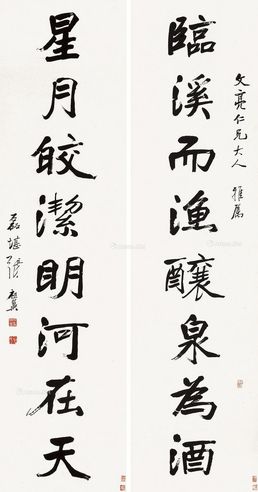 文亮仁兄大人 雅屬
臨溪而漁釀泉為酒
星月皎潔明河在天
磊堪張祖翼